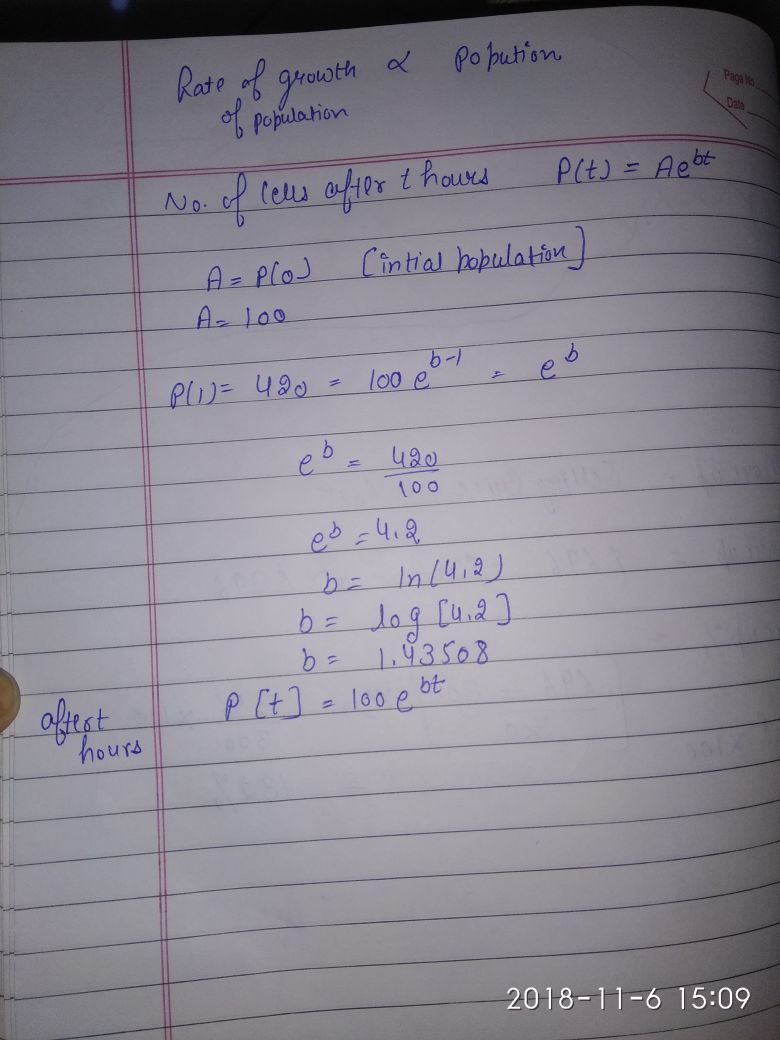 Rate of growth ∝ Popution
of population
Page No
Date
No. of Cells after t hours P(t) = Ae^bt
A = P(0) [intial population]
A = 100
P(1) = 420 = 100 e^b-1 = e^b
e^b = 420/100
e^b = 4.2
b = ln(4.2)
b = log [4.2]
b = 1.43508
P[t] = 100 e^bt
aftert
hours
2018-11-6 15:09